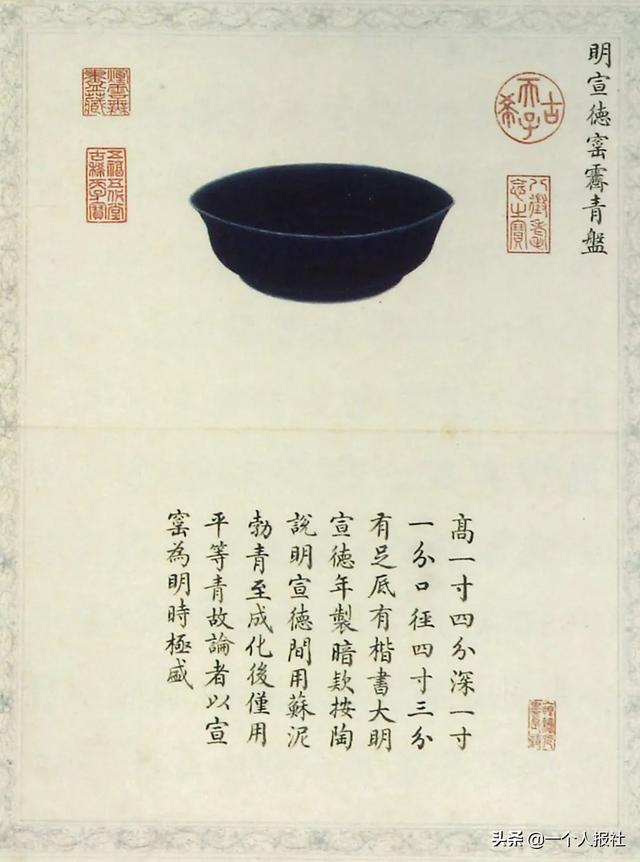 明宣德窰霽青盤
古希天子
八徵耄
念之寶
五福五代堂
古稀天子寶
高一寸四分深一寸
一分口徑四寸三分
有足底有楷書大明
宣德年製暗款按陶
說明宣德間用蘇泥
勃青至成化後僅用
平等青故論者以宣
窰為明時極盛
头条 @一个人报社